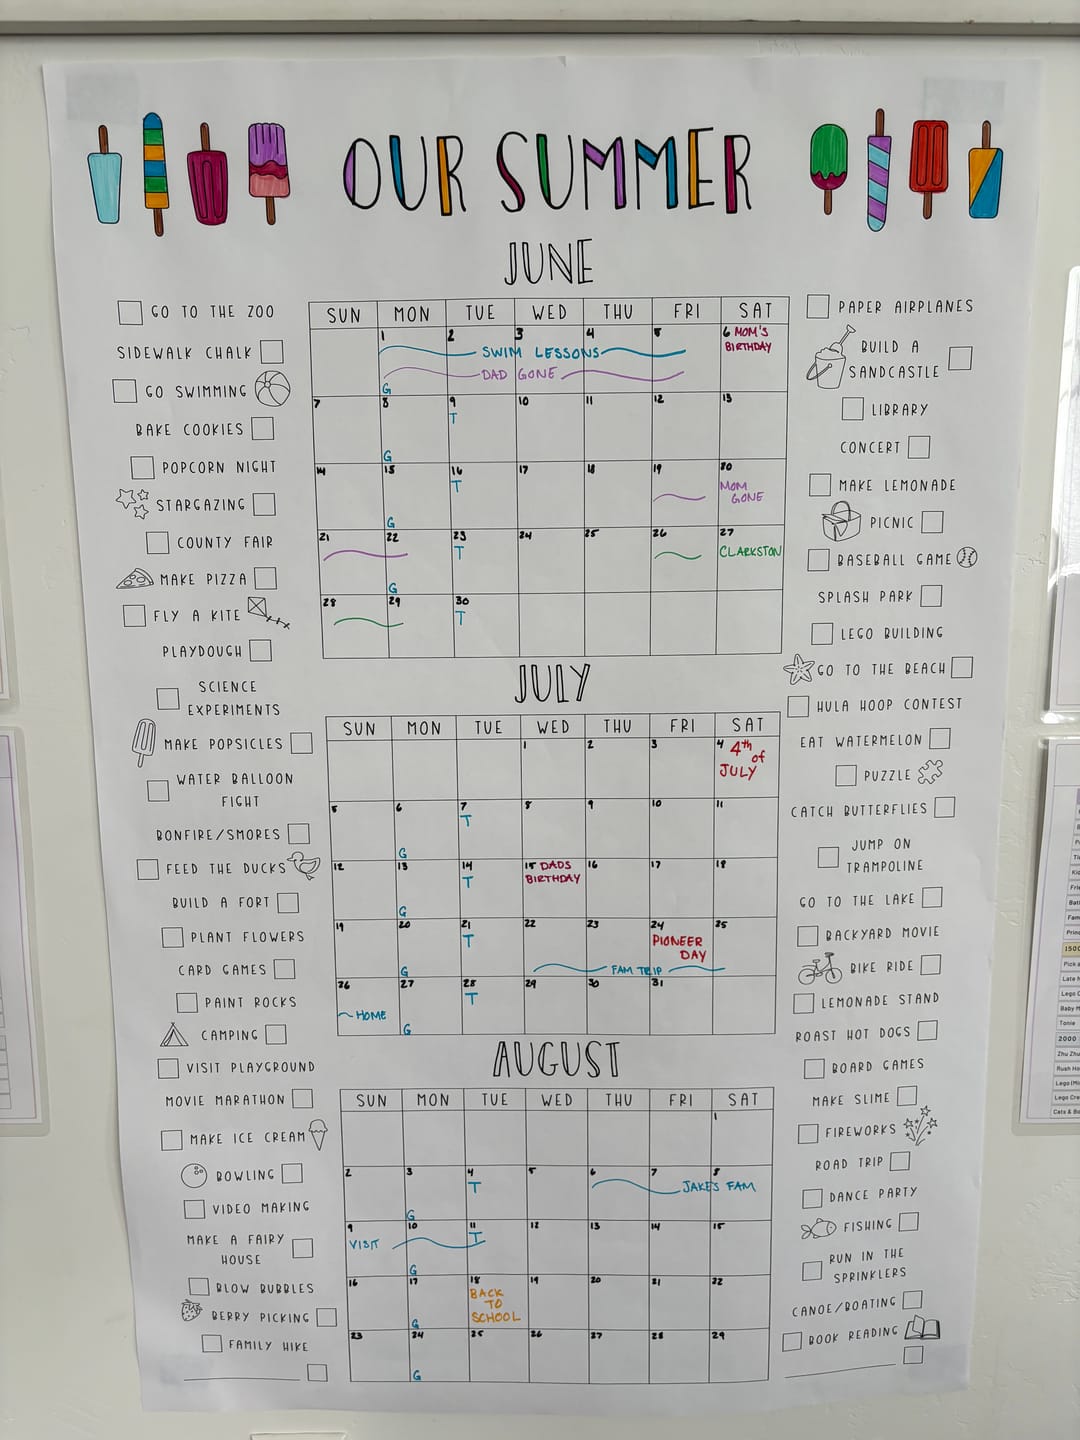 OUR SUMMER
GO TO THE ZOO
SIDEWALK CHALK
GO SWIMMING
BAKE COOKIES
POPCORN NIGHT
STARGAZING
COUNTY FAIR
MAKE PIZZA
FLY A KITE
PLAYDOUGH
SCIENCE
EXPERIMENTS
MAKE POPSICLES
WATER BALLOON
FIGHT
BONFIRE/SMORES
FEED THE DUCKS
BUILD A FORT
PLANT FLOWERS
CARD GAMES
PAINT ROCKS
CAMPING
VISIT PLAYGROUND
MOVIE MARATHON
MAKE ICE CREAM
BOWLING
VIDEO MAKING
MAKE A FAIRY
HOUSE
BLOW BUBBLES
BERRY PICKING
FAMILY HIKE
JUNE
SUN MON TUE WED THU FRI SAT
1 2 3 4 5 6 MOM'S
BIRTHDAY
SWIM LESSONS
DAD GONE
G
7 8 9 10 11 12 13
T
G
14 15 16 17 18 19 20
T MOM
GONE
G
21 22 23 24 25 26 27
T CLARKSTON
G
28 29 30
T
JULY
SUN MON TUE WED THU FRI SAT
1 2 3 4 4th
of
JULY
5 6 7 8 9 10 11
T
G
12 13 14 15 DADS 16 17 18
T BIRTHDAY
G
19 20 21 22 23 24 25
T PIONEER
DAY
G FAM TRIP
26 27 28 29 30 31
T
HOME
G
AUGUST
SUN MON TUE WED THU FRI SAT
1
2 3 4 5 6 7 8
T JAKE'S FAM
G
9 10 11 12 13 14 15
VISIT T
G
16 17 18 19 20 21 22
BACK
TO
SCHOOL
G
23 24 25 26 27 28 29
G
PAPER AIRPLANES
BUILD A
SANDCASTLE
LIBRARY
CONCERT
MAKE LEMONADE
PICNIC
BASEBALL GAME
SPLASH PARK
LEGO BUILDING
GO TO THE BEACH
HULA HOOP CONTEST
EAT WATERMELON
PUZZLE
CATCH BUTTERFLIES
JUMP ON
TRAMPOLINE
GO TO THE LAKE
BACKYARD MOVIE
BIKE RIDE
LEMONADE STAND
ROAST HOT DOGS
BOARD GAMES
MAKE SLIME
FIREWORKS
ROAD TRIP
DANCE PARTY
FISHING
RUN IN THE
SPRINKLERS
CANOE/BOATING
BOOK READING
1500
Pick a
Late
Lego
Baby
Tonie
2000
Zhu Zhu
Rush
Lego
Lego
Cats &